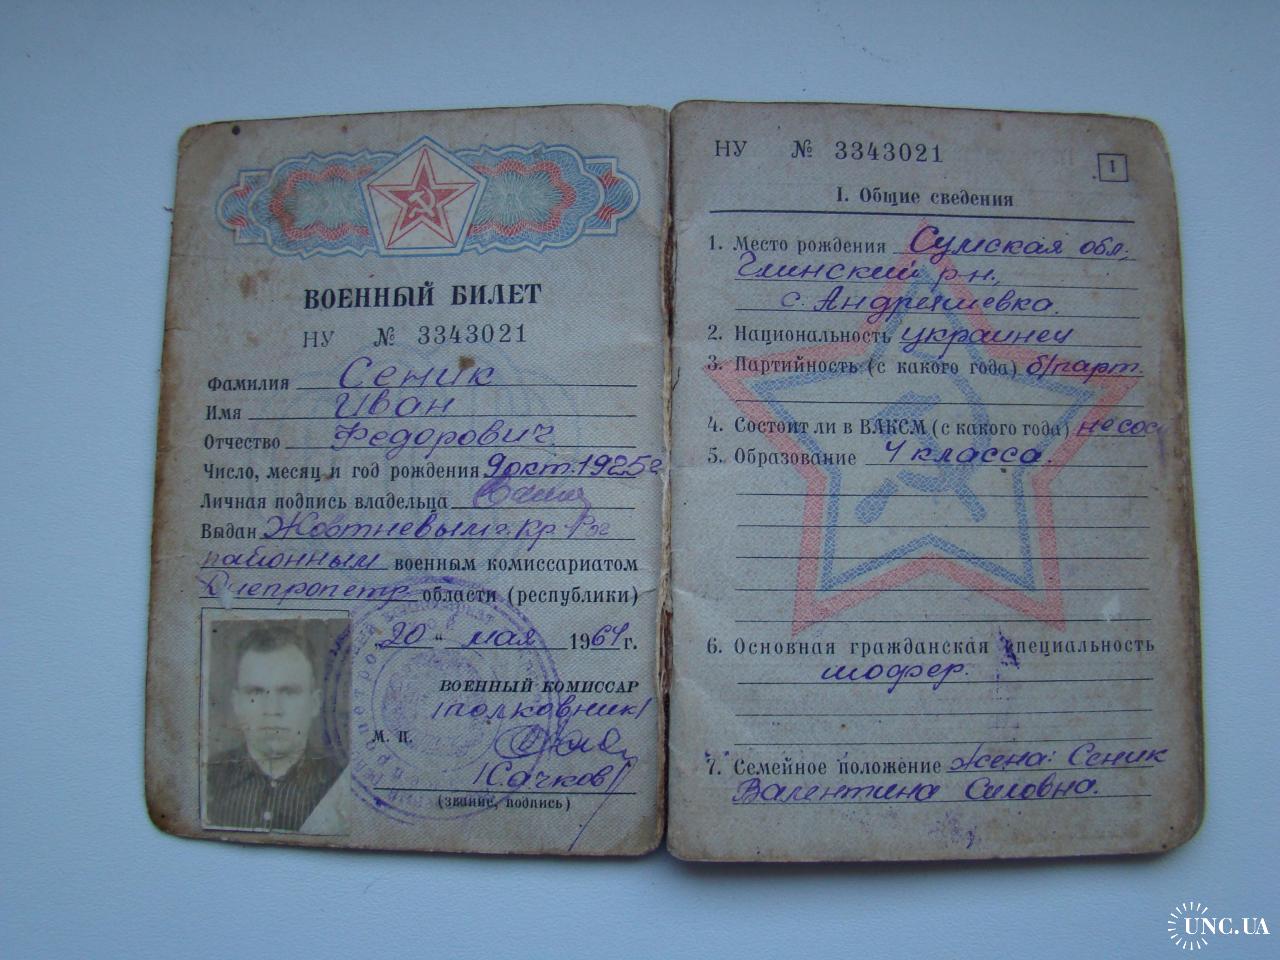 ВОЕННЫЙ БИЛЕТ
НУ № 3343021
Фамилия Сеник
Имя Иван
Отчество Федорович
Число, месяц и год рождения 9 окт. 1925 г
Личная подпись владельца
Выдан Жовтневым г. Кр-Рог
районным военным комиссариатом
Днепропетр. области (республики)
„20“ мая 1964 г.
ВОЕННЫЙ КОМИССАР
/полковник/
М. П.
/Сачков/
(звание, подпись)
НУ № 3343021
1
I. Общие сведения
1. Место рождения Сумская обл.
Глинский р-н,
с. Андреяшевка.
2. Национальность украинец
3. Партийность (с какого года) б/парт.
4. Состоит ли в ВЛКСМ (с какого года) не сос
5. Образование 4 класса.
6. Основная гражданская специальность
шофер.
7. Семейное положение жена: Сеник
Валентина Силовна.
UNC.UA